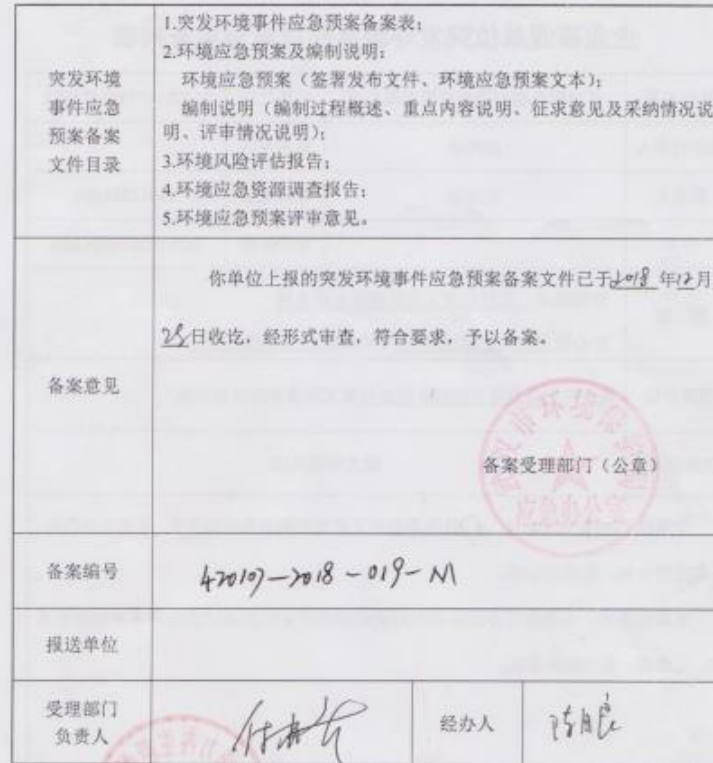 1.突发环境事件应急预案备案表;
2.环境应急预案及编制说明:
环境应急预案（签署发布文件、环境应急预案文本）;
编制说明（编制过程概述、重点内容说明、征求意见及采纳情况说
明、评审情况说明）;
3.环境风险评估报告;
4.环境应急资源调查报告;
5.环境应急预案评审意见。
突发环境
事件应急
预案备案
文件目录
你单位上报的突发环境事件应急预案备案文件已于2018 年12月
25日收讫，经形式审查，符合要求，予以备案。
备案意见
备案受理部门（公章）
备案编号
420107-2018-019-M
报送单位
受理部门
负责人
经办人